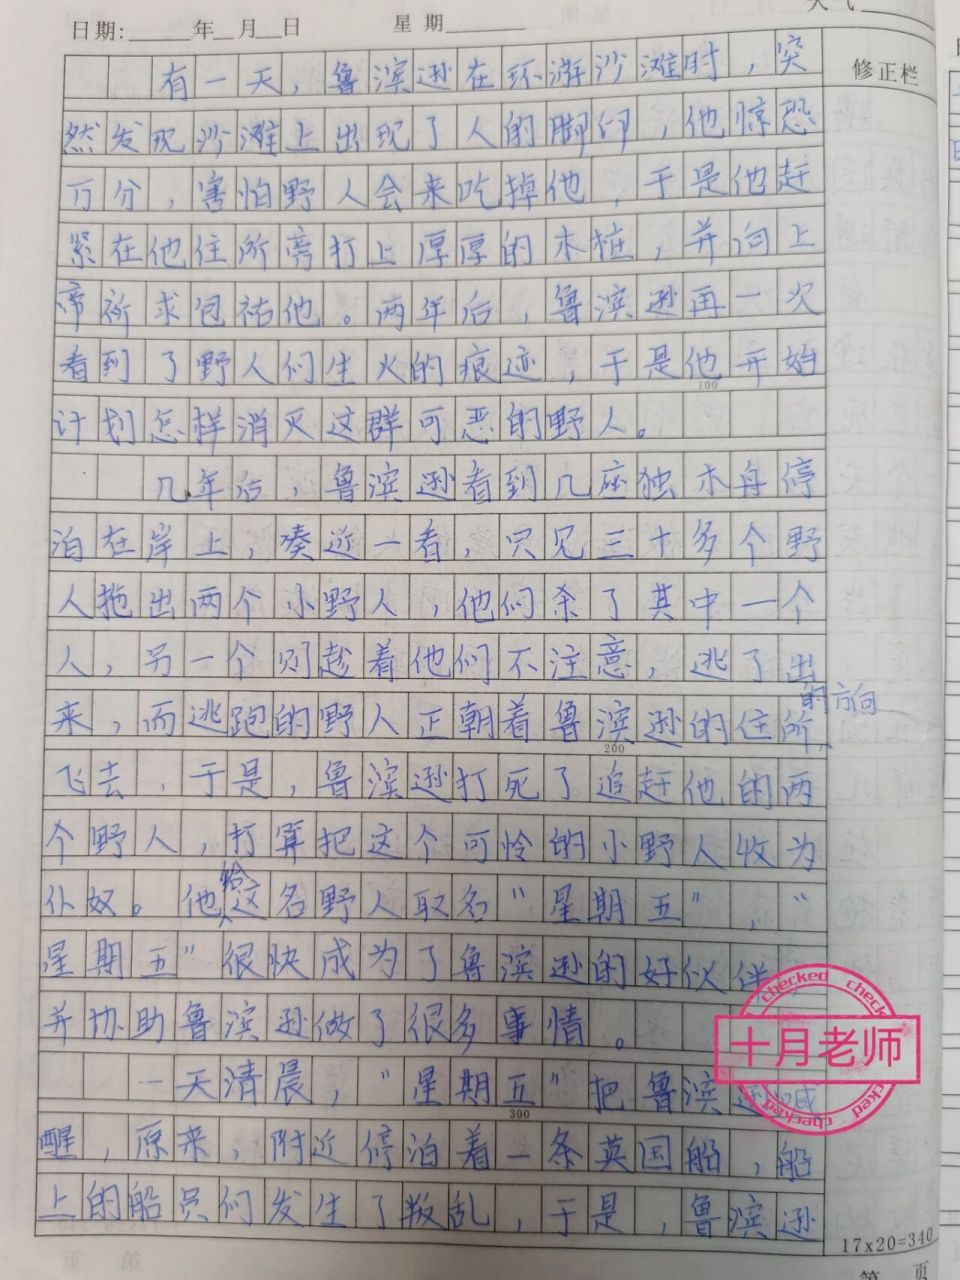 日期: 年 月 日 星期 天气
修正栏
有一天，鲁滨逊在环游沙滩时，突
然发现沙滩上出现了人的脚印，他惊恐
万分，害怕野人会来吃掉他，于是他赶
紧在他住所旁打上厚厚的木桩，并向上
帝祈求包祐他。两年后，鲁滨逊再一次
看到了野人们生火的痕迹，于是他开始
100
计划怎样消灭这群可恶的野人。
几年后，鲁滨逊看到几座独木舟停
泊在岸上，凑近一看，只见三十多个野
人拖出两个小野人，他们杀了其中一个
人，另一个则趁着他们不注意，逃了出
来，而逃跑的野人正朝着鲁滨逊的住所的方向
200
飞去，于是，鲁滨逊打死了追赶他的两
个野人，打算把这个可怜的小野人收为
仆奴。他给这名野人取名“星期五”，“
星期五”很快成为了鲁滨逊的好伙伴，
并协助鲁滨逊做了很多事情。
一天清晨，“星期五”把鲁滨逊喊
300
醒，原来，附近停泊着一条英国船，船
上的船员们发生了叛乱，于是，鲁滨逊
17x20=340
第 页
checked checked
十月老师
checked checked